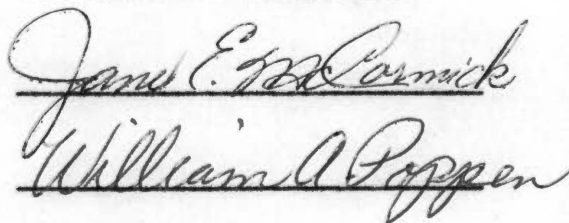 Jane E. McCormick
William A. Poppen